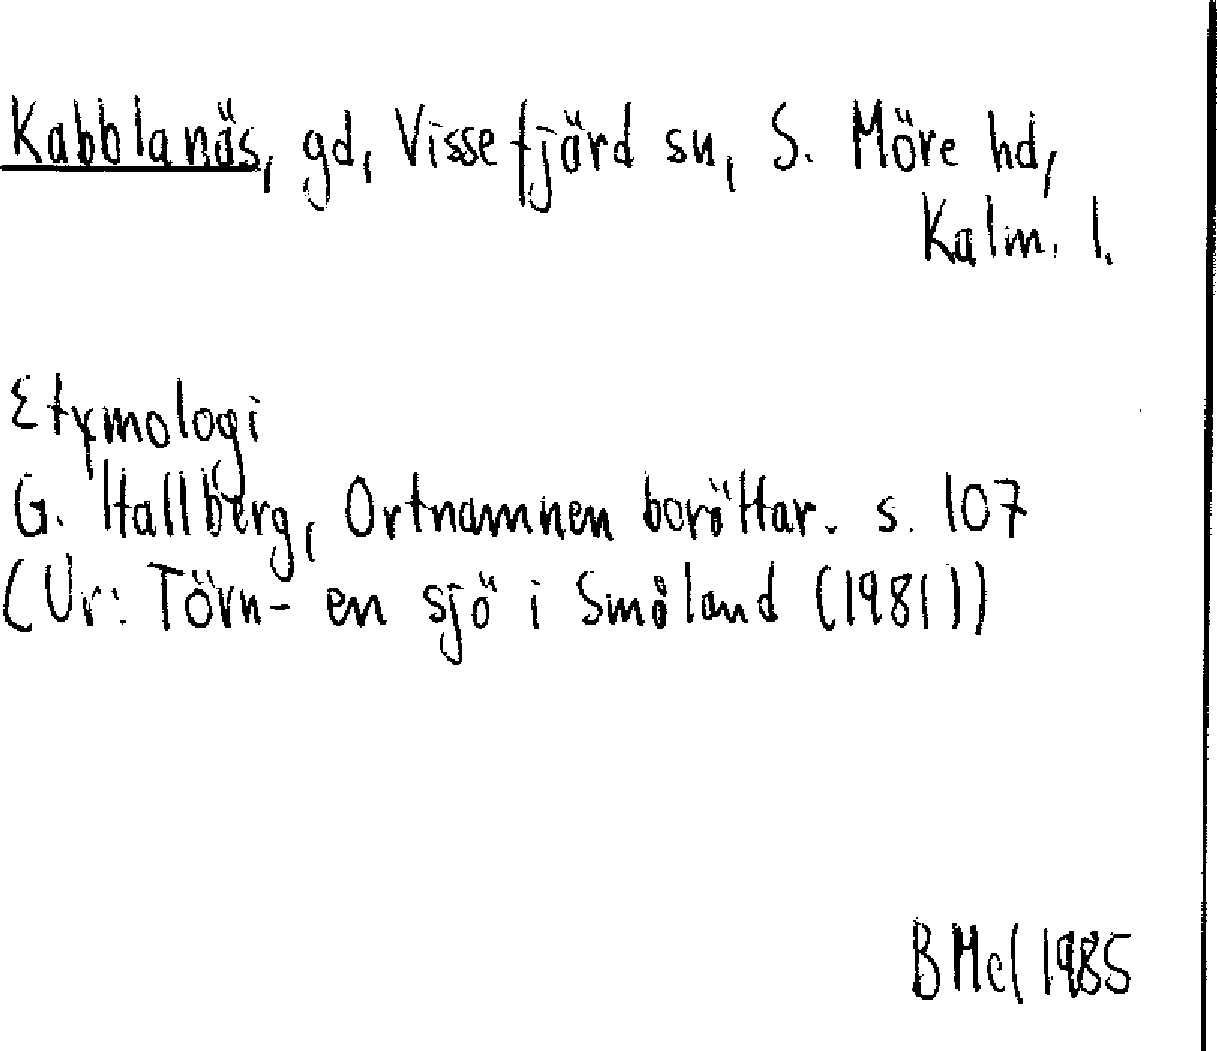 Kabblanäs, gd, Vissefjärd sn, S. Möre hd,
Kalm. l.
Etymologi
G. Hallberg, Ortnamnen berättar. s. 107
(Ur: Törn- en sjö i Småland (1981))
BMcl 1985